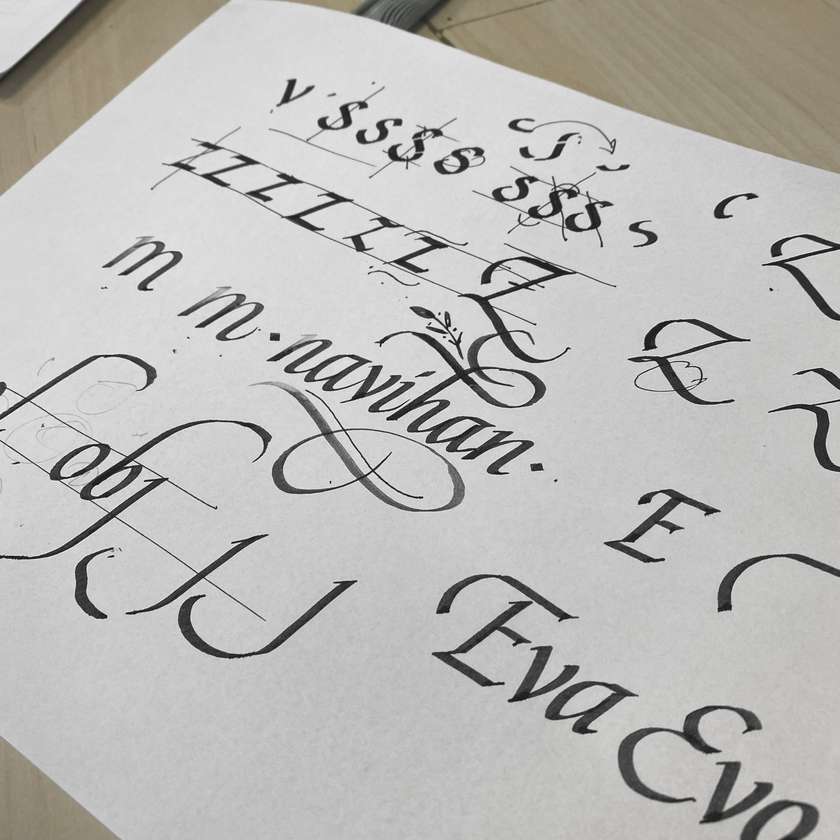 v s s s s s s s s
z z z z z z z Z
m m . navihan.
Z
obj
J J
E
Eva Evo